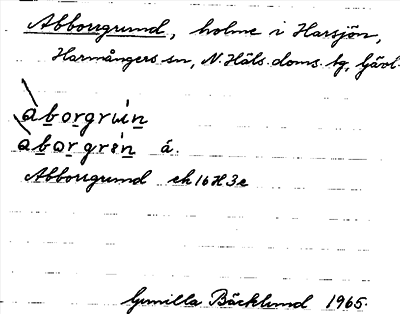 Abborrgrund, holme i Harsjön,
Harmångers sn, N. Häls. doms. tg, Gävl.
àborgrùn
àborgrɵn á.
Abborrgrund ek 16H3e
Gunilla Bäcklund 1965.